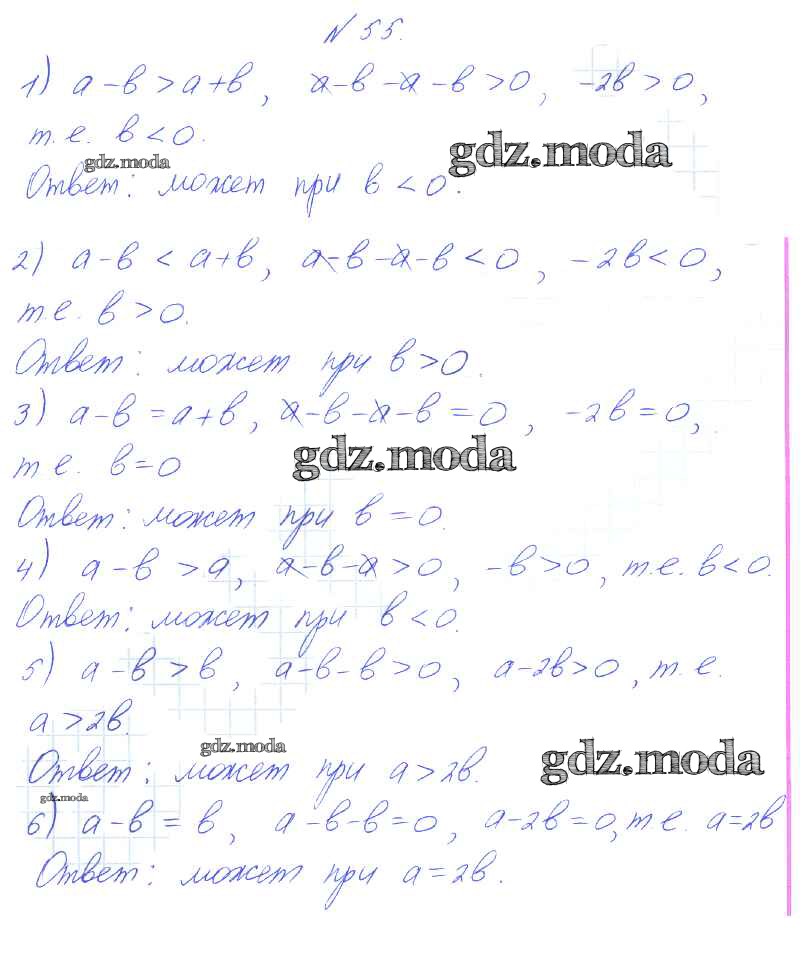 № 55.
1) a-в>a+в, a-в-a-в>0, -2в>0,
т.е. в<0.
gdz.moda
gdz.moda
Ответ: может при в<0.
2) a-в<a+в, a-в-a-в<0, -2в<0,
т.е. в>0.
Ответ: может при в>0.
3) a-в=a+в, a-в-a-в=0, -2в=0,
т е. в=0
gdz.moda
Ответ: может при в=0.
4) a-в>a, a-в-a>0, -в>0, т.е. в<0.
Ответ: может при в<0.
5) a-в>в, a-в-в>0, a-2в>0, т.е.
a>2в.
gdz.moda
gdz.moda
Ответ: может при a>2в.
gdz.moda
6) a-в=в, a-в-в=0, a-2в=0, т е. a=2в
Ответ: может при a=2в.